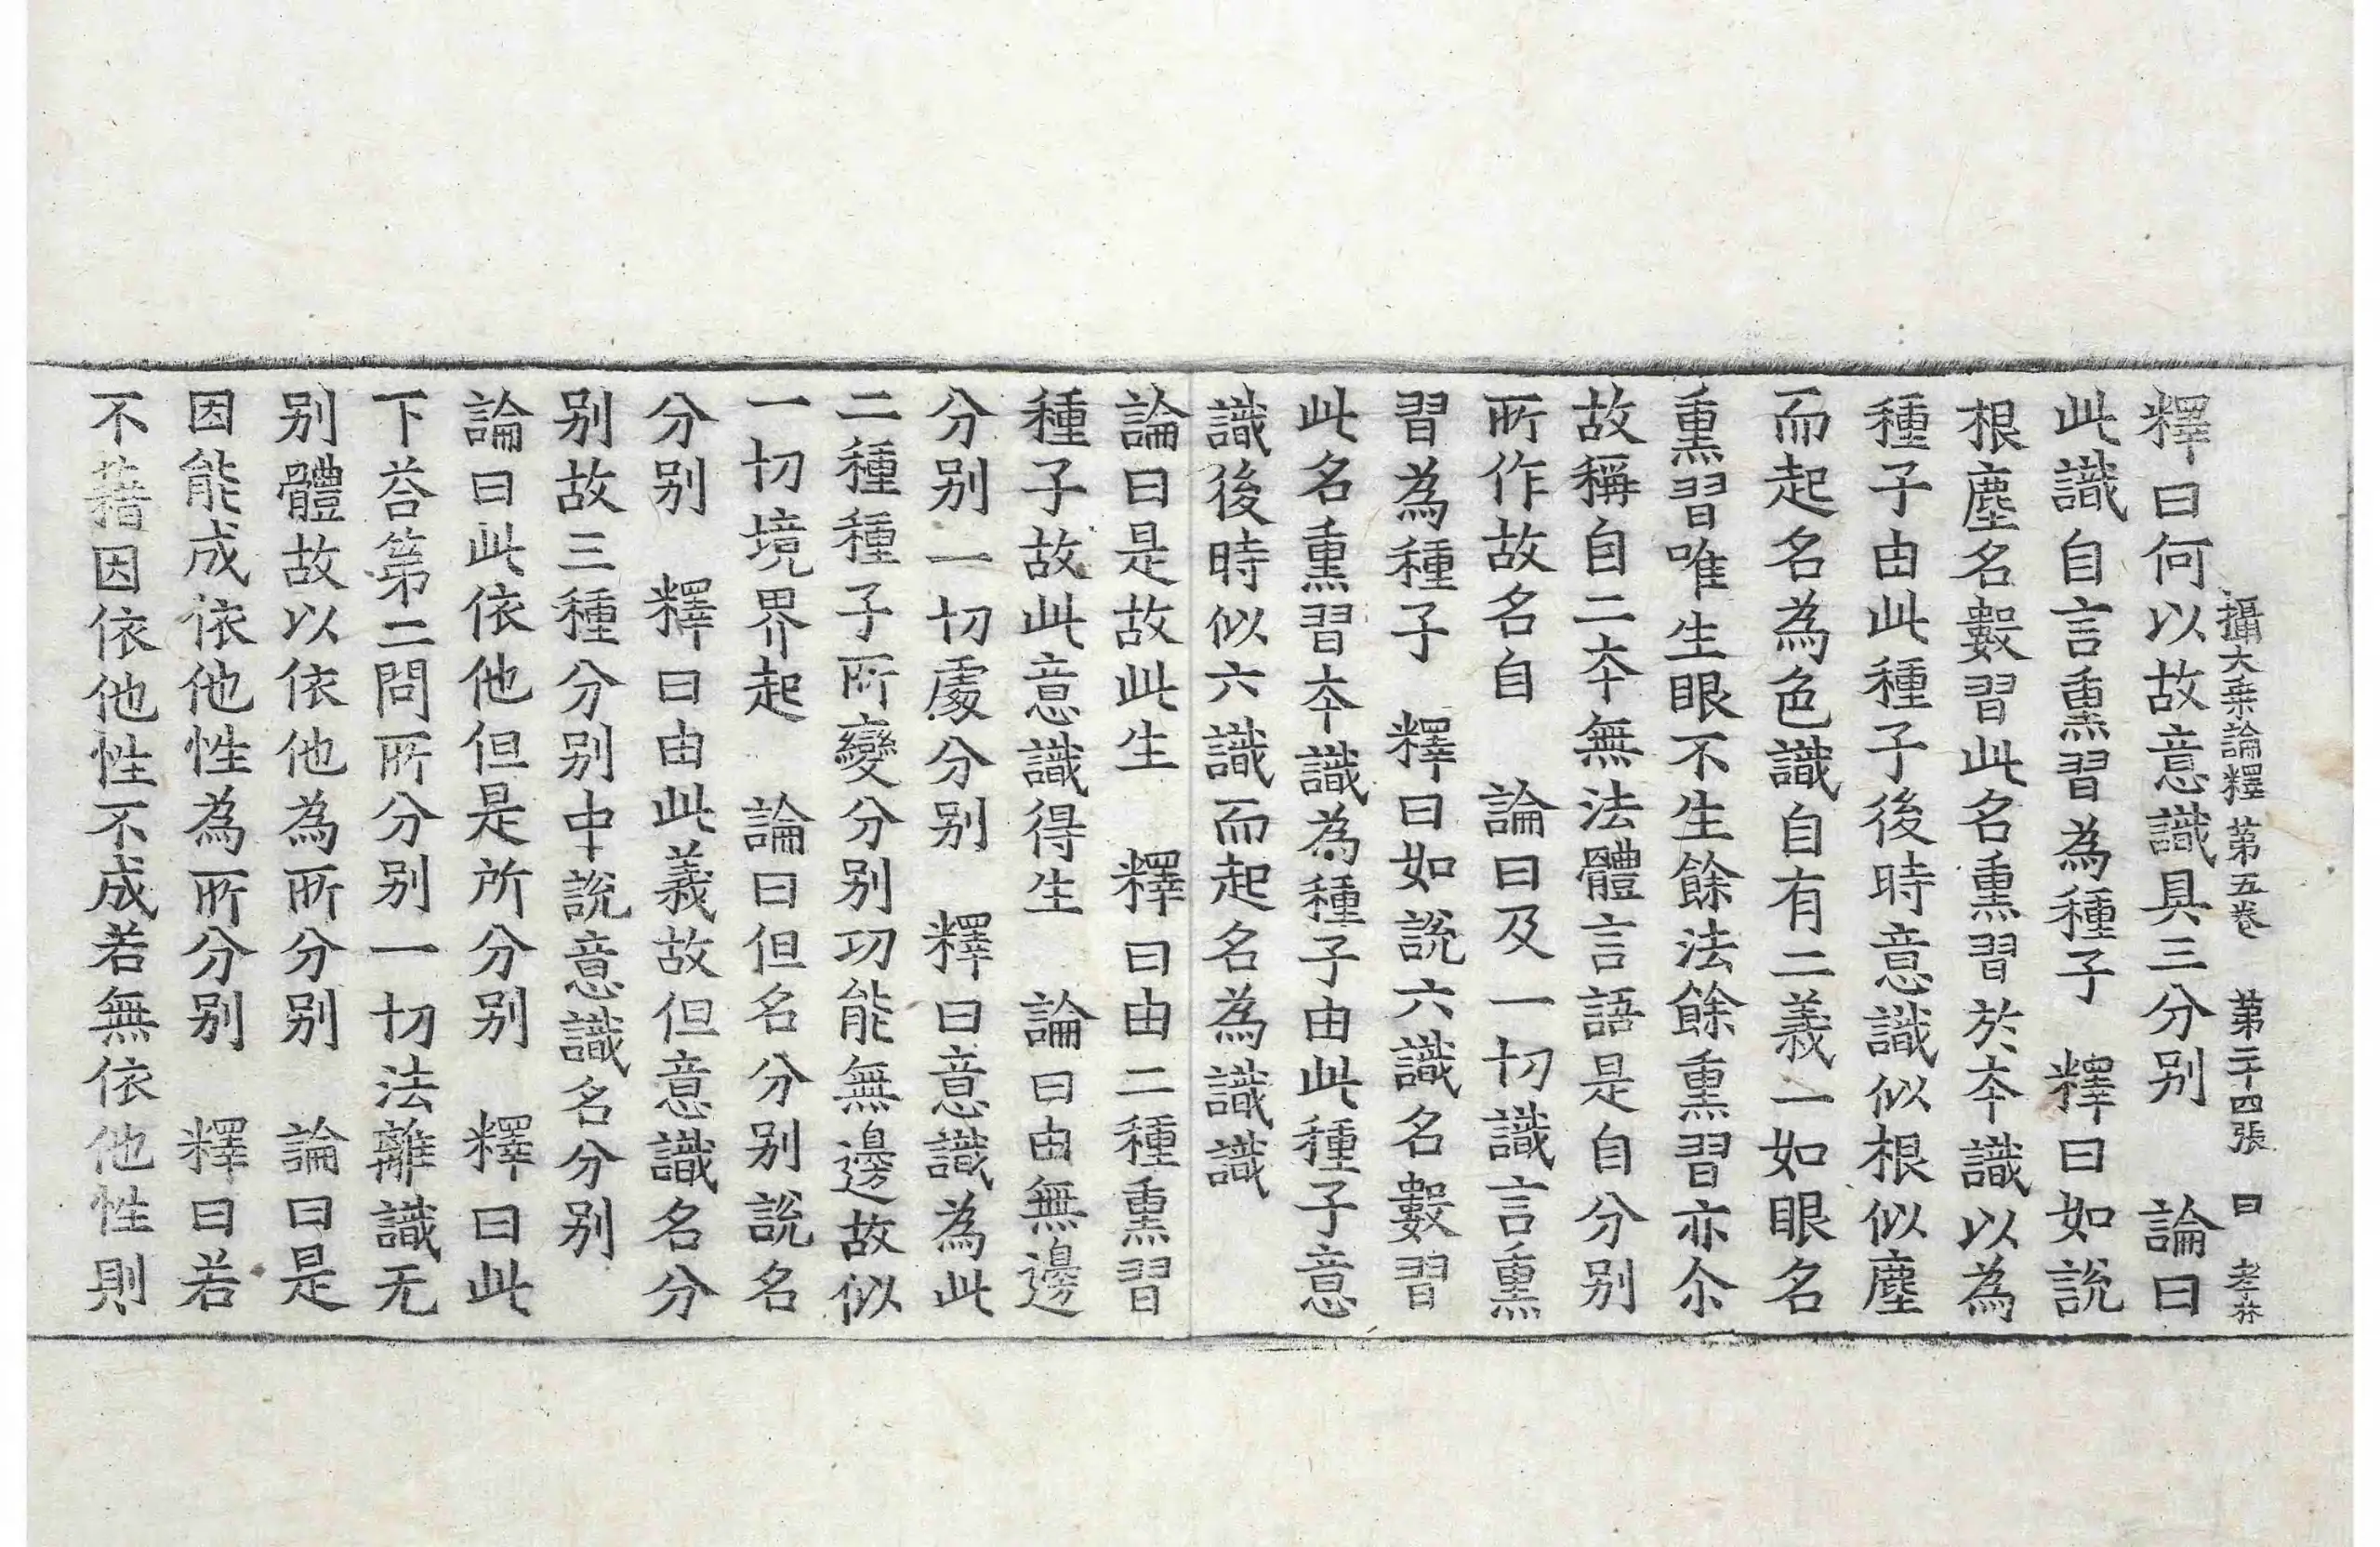 攝大乗論釋第五卷　第二十四張　曰　孝林
釋曰何以故意識具三分别　論曰
此識自言熏習為種子　釋曰如說
根塵名數習此名熏習於夲識以為
種子由此種子後時意識似根似塵
而起名為色識自有二義一如眼名
熏習唯生眼不生餘法餘熏習亦尒
故稱自二夲無法體言語是自分别
所作故名自　論曰及一切識言熏
習為種子　釋曰如說六識名數習
此名熏習夲識為種子由此種子意
識後時似六識而起名為識識
論曰是故此生　釋曰由二種熏習
種子故此意識得生　論曰由無邊
分别一切處分别　釋曰意識為此
二種種子所變分别功能無邊故似
一切境界起　論曰但名分别說名
分别　釋曰由此義故但意識名分
别故三種分别中說意識名分别
論曰此依他但是所分别　釋曰此
下荅第二問所分别一切法離識无
别體故以依他為所分别　論曰是
因能成依他性為所分别　釋曰若
不藉因依他性不成若無依他性則